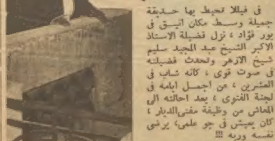 في فيللا تحيط بها حديقة
جميلة وسط مكان أنيق في
بور فؤاد ، نزل فضيلة الاستاذ
الاكبر الشيخ عبد المجيد سليم
شيخ الازهر وتحدث فضيلته
في صوت قوي ، كأنه شاب في
العشرين ، عن اجمل ايامه في
لجنة الفتوى ، بعد احالته الى
المعاش من وظيفة مفتي الديار ،
كان يعيش في جو علمي، يرضي
نفسه وربه !!!